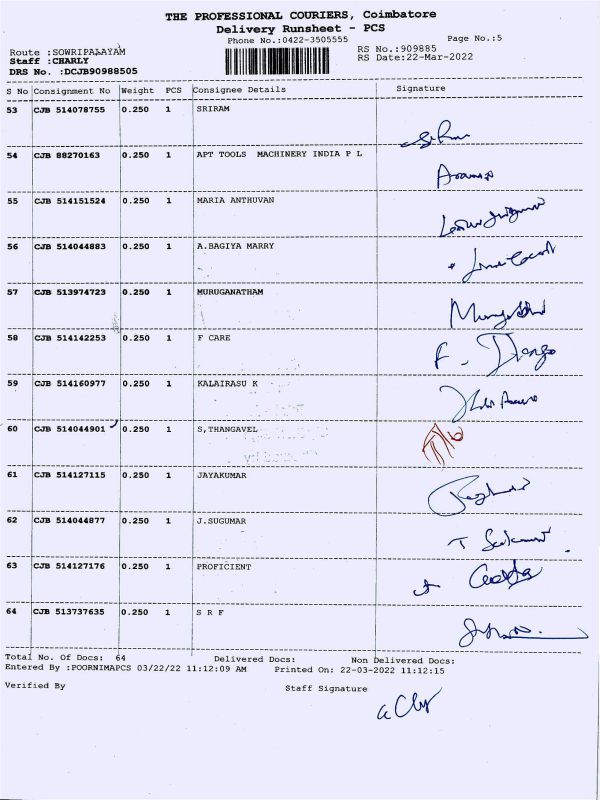 THE PROFESSIONAL COURIERS, Coimbatore
Delivery Runsheet - PCS
Phone No.:0422-3505555 Page No.:5
Route :SOWRIPALAYAM RS No.:909885
Staff :CHARLY RS Date:22-Mar-2022
DRS No. :DCJB90988505
S No Consignment No Weight PCS Consignee Details Signature
53 CJB 514078755 0.250 1 SRIRAM
54 CJB 88270163 0.250 1 APT TOOLS MACHINERY INDIA P L
55 CJB 514151524 0.250 1 MARIA ANTHUVAN
56 CJB 514044883 0.250 1 A.BAGIYA MARRY
57 CJB 513974723 0.250 1 MURUGANATHAM
58 CJB 514142253 0.250 1 F CARE
59 CJB 514160977 0.250 1 KALAIRASU K
60 CJB 514044901 0.250 1 S,THANGAVEL
61 CJB 514127115 0.250 1 JAYAKUMAR
62 CJB 514044877 0.250 1 J.SUGUMAR
63 CJB 514127176 0.250 1 PROFICIENT
64 CJB 513737635 0.250 1 S R F
Total No. Of Docs: 64 Delivered Docs: Non Delivered Docs:
Entered By :POORNIMAPCS 03/22/22 11:12:09 AM Printed On: 22-03-2022 11:12:15
Verified By Staff Signature